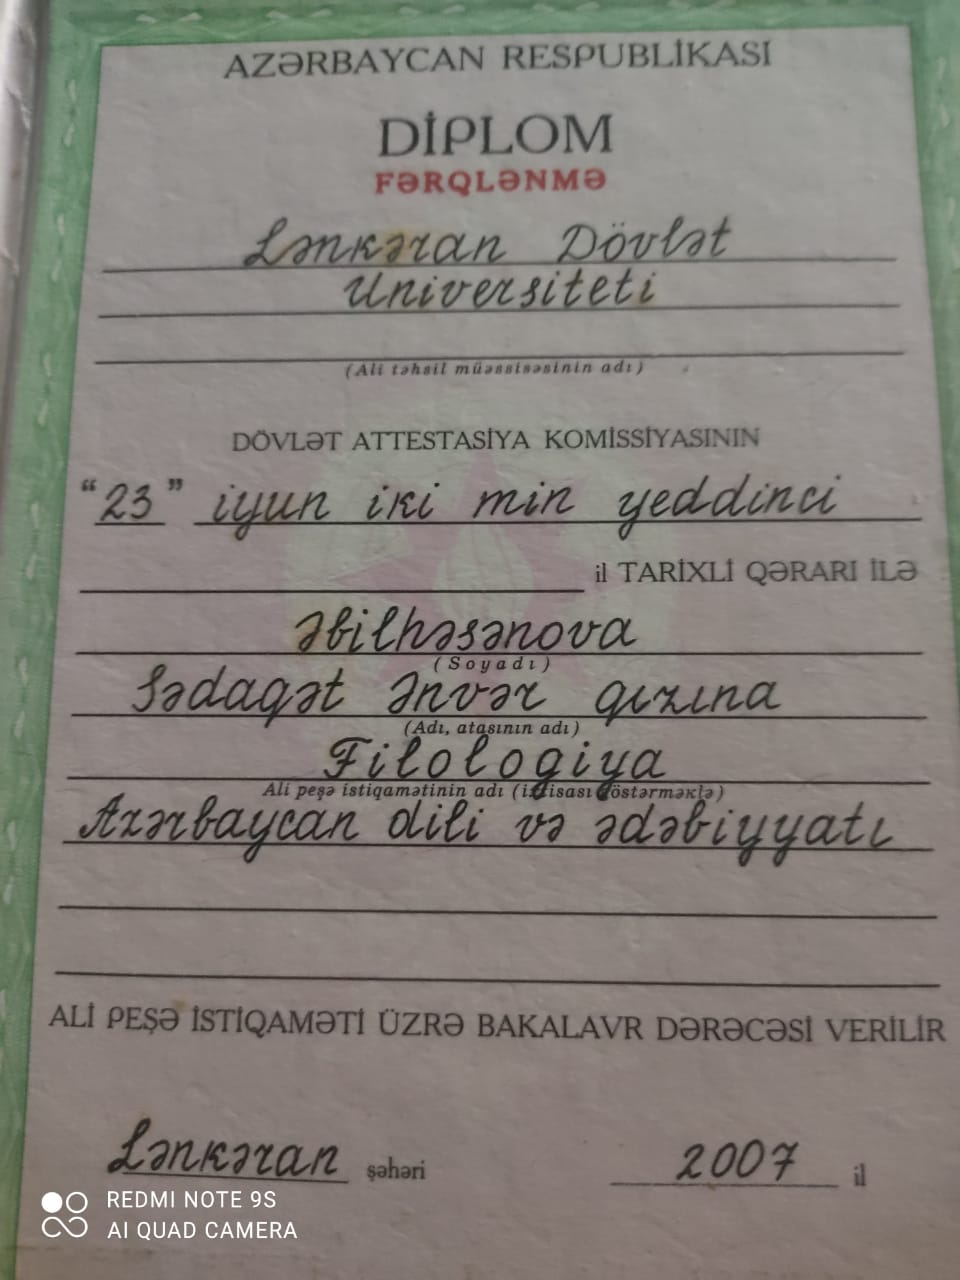 AZƏRBAYCAN RESPUBLİKASI
DİPLOM
FƏRQLƏNMƏ
Lənkəran Dövlət
Universiteti
(Ali təhsil müəssisəsinin adı)
DÖVLƏT ATTESTASİYA KOMİSSİYASININ
“23” iyun iki min yeddinci
il TARİXLİ QƏRARI İLƏ
Əbilhəsənova
(Soyadı)
Sədaqət Ənvər qızına
(Adı, atasının adı)
Filologiya
Ali peşə istiqamətinin adı (ixtisası göstərməklə)
Azərbaycan dili və ədəbiyyatı
ALİ PEŞƏ İSTİQAMƏTİ ÜZRƏ BAKALAVR DƏRƏCƏSİ VERİLİR
Lənkəran şəhəri 2007 il
REDMI NOTE 9S
AI QUAD CAMERA